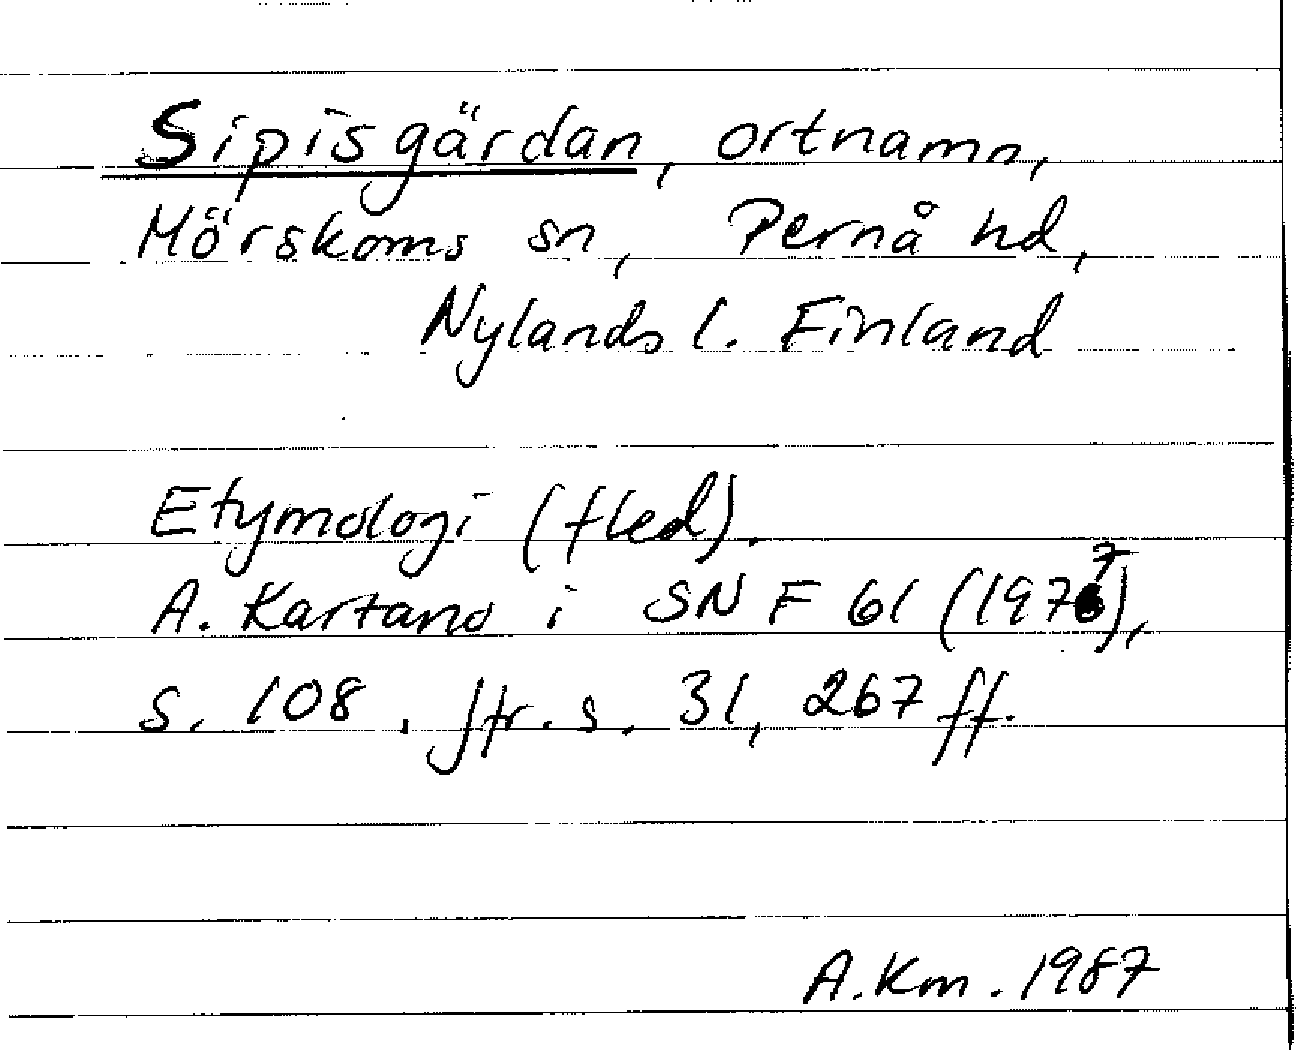 Sipisgärdan, ortnamn,
Mörskoms sn, Pernå hd,
Nylands l. Finland
Etymologi (fled).
A. Kartano i SNF 61 (1977),
s. 108. Jfr. s. 31, 267 ff.
A.Km. 1987